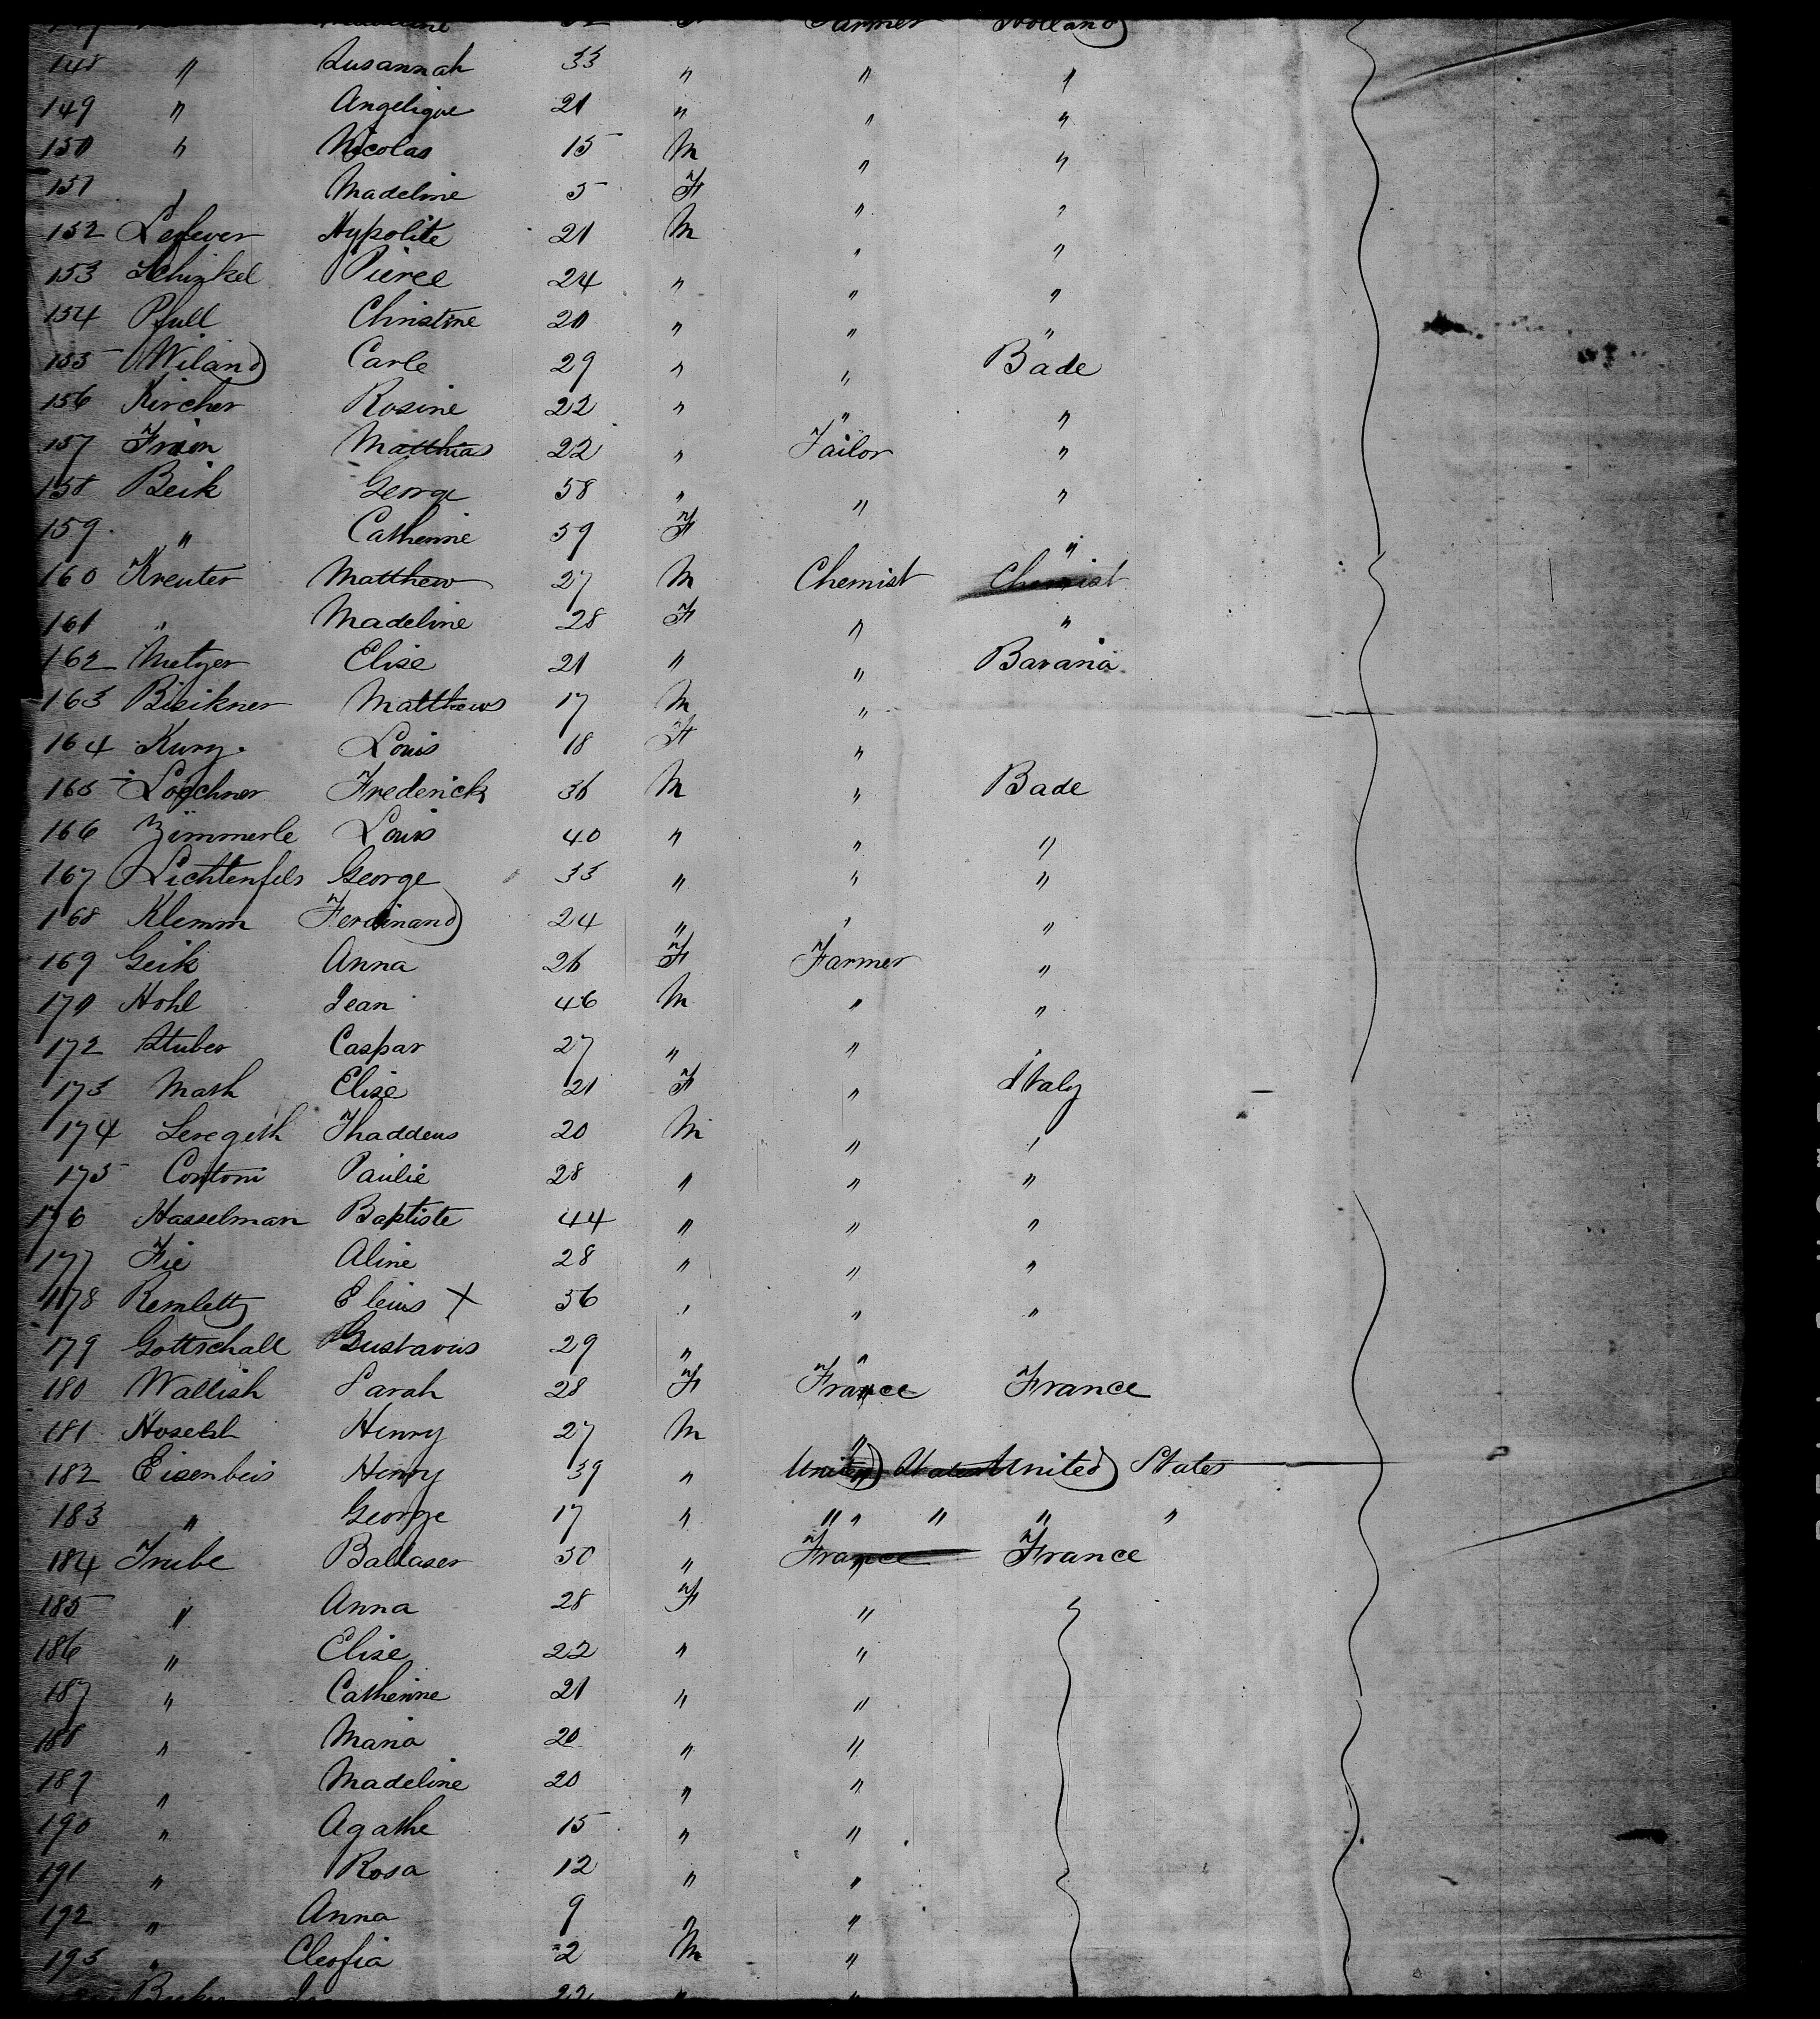 Farmer Holland
148 " Susannah 33 " " "
149 " Angelique 21 " " "
150 " Nicolas 15 M " "
151 " Madeline 5 F " "
152 Lefever Hypolite 21 M " "
153 Schinkel Pierce 24 " " "
154 Pfull Christine 20 " " "
155 Wiland Carle 29 " " Bade
156 Kircher Rosine 22 " " "
157 Matthias 22 " Tailor "
158 Beik George 58 " " "
159 " Catherine 59 F "
160 Kreuter Matthew 27 M Chemist Chemist
161 " Madeline 28 F " "
162 Metzer Elise 21 " " Bavaria
163 Bisikner Matthews 17 M "
164 Kury Louis 18 F "
165 Loechner Frederick 36 M " Bade
166 Zimmerle Louis 40 " " "
167 Lichtenfels George 33 " " "
168 Klemm Ferdinand 24 " " "
169 Geik Anna 26 F Farmer "
170 Hohl Jean 46 M " "
172 Stuber Caspar 27 " " "
173 Math Elise 21 F " Italy
174 Thaddeus 20 M " "
175 Contoni Paulie 28 " " "
176 Hasselman Baptiste 44 " " "
177 Fie Aline 28 " " "
178 Remletty Eleius X 56 " " "
179 Gottschall Gustavus 29 " "
180 Wallish Sarah 28 F France France
181 Henry 27 M "
182 Eisenbeis Henry 39 " United States United States
183 " George 17 " " " " " "
184 Trube Baltaser 50 " France France
185 " Anna 28 F "
186 " Elise 22 " "
187 " Catherine 21 " "
188 " Maria 20 " "
189 " Madeline 20 " "
190 " Agathe 15 " "
191 " Rosa 12 " "
192 " Anna 9 " "
193 " Cleofia 2 M "
22 " "